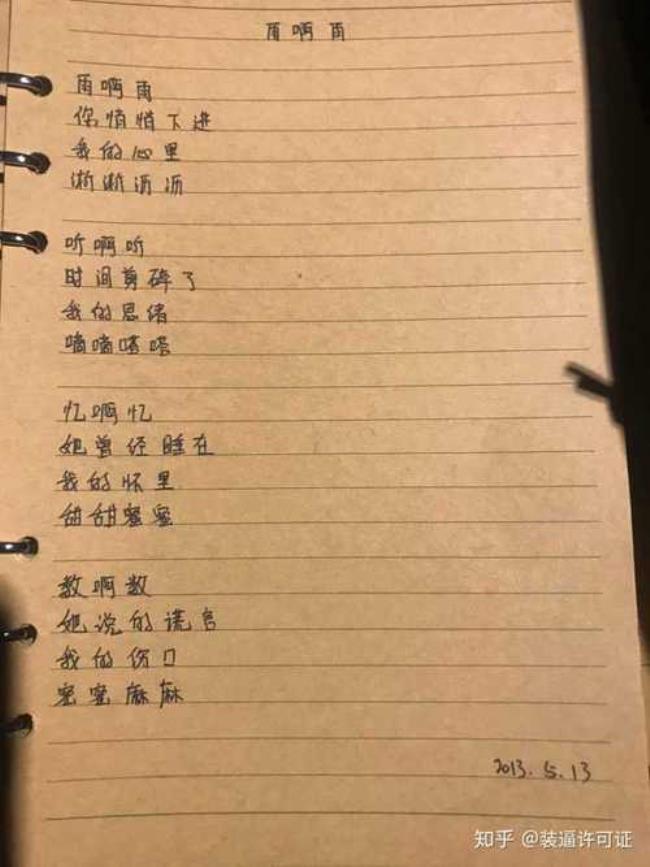 雨啊雨
雨啊雨
你悄悄下进
我的心里
淅淅沥沥
听啊听
时间剪碎了
我的思绪
嘀嘀嗒嗒
忆啊忆
她曾经睡在
我的怀里
甜甜蜜蜜
数啊数
她说的谎言
我的伤口
密密麻麻
2013.5.13
知乎 @装逼许可证